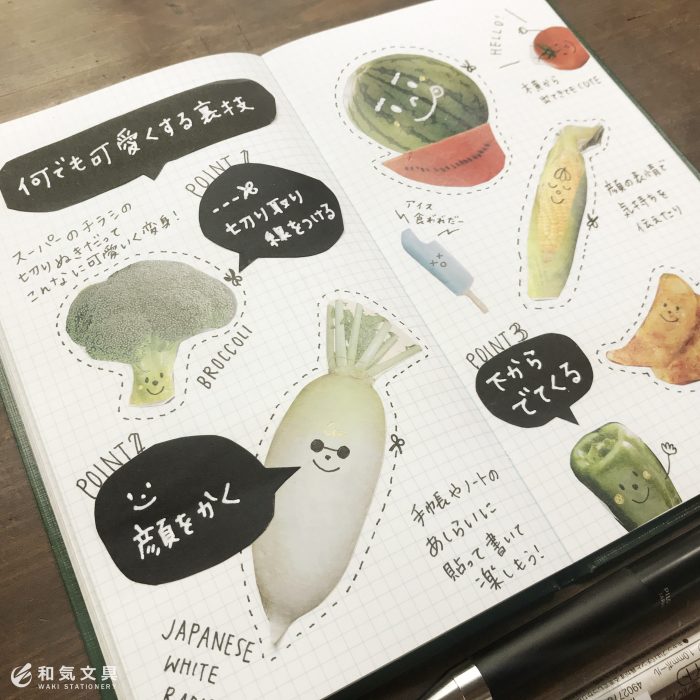 何でも可愛くする裏技
スーパーのチラシの
切りぬきだって
こんなに可愛いく変身!
POINT 1
切り取り
線をつける
BROCCOLI
POINT 2
顔をかく
JAPANESE
WHITE
手帳やノートの
あしらいに
貼って書いて
楽しもう!
HELLO!
出てきてもCUTE
アイス
顔の表情で
気持ちを
伝えたり
POINT 3
下から
でてくる
和気文具
WAKI STATIONERY